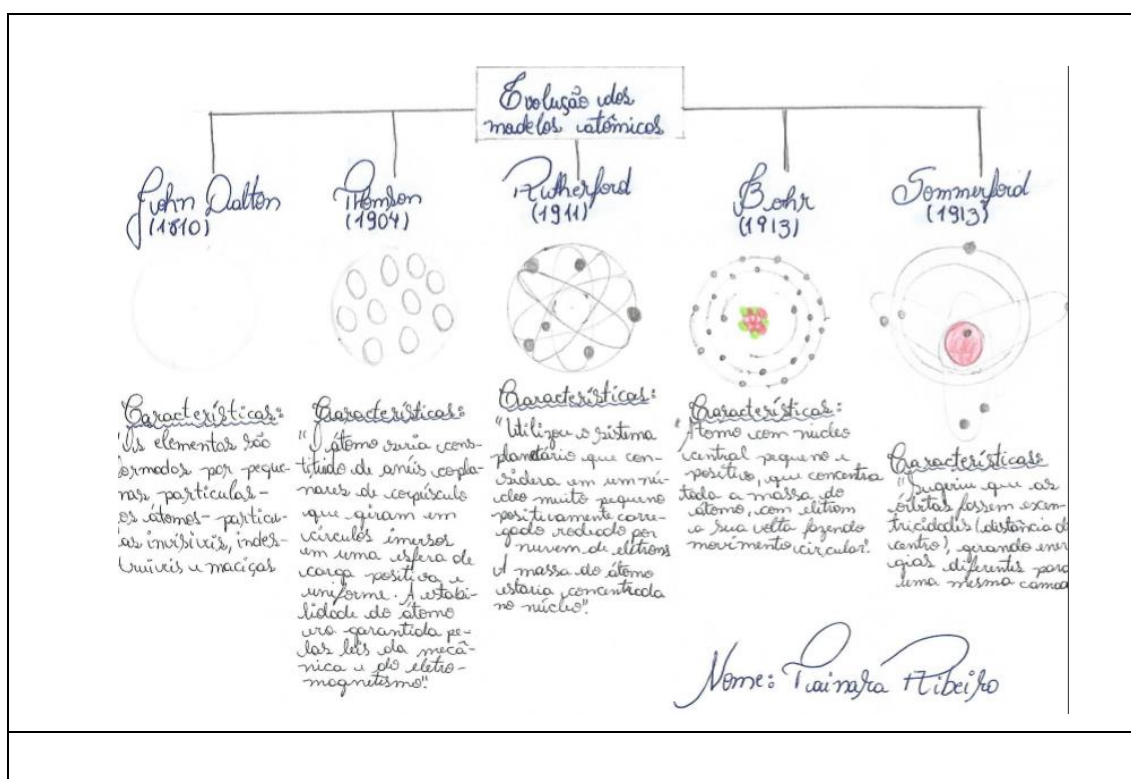 Evolução dos
modelos atômicos
John Dalton
(1810)
Thomson
(1904)
Rutherford
(1911)
Bohr
(1913)
Sommerford
(1913)
Características:
"Os elementos são
ormados por peque-
nas partículas -
os átomos - partícu-
as invisíveis, indes-
trutíveis e maciças
Características:
"O átomo seria cons-
tituído de anéis copla-
nares de corpúsculo
que giram em
círculos imersos
em uma esfera de
carga positiva e
uniforme. A estabi-
lidade do átomo
era garantida pe-
las leis da mecâ-
nica e do eletro-
magnetismo".
Características:
"Utilizou o sistema
planetário que con-
sidera em um nú-
cleo muito pequeno
positivamente carre-
gado rodiado por
nuvem de elétrons
A massa do átomo
estaria concentrada
no núcleo".
Características:
"Átomo com núcleo
central pequeno e
positivo, que concentra
toda a massa do
átomo, com elétrom
a sua volta fazendo
movimento circular".
Características:
"Sugeriu que as
orbitas fossem excen-
tricidades (distância d
centro), girando ener
gias diferentes para
uma mesma camad
Nome: Tainara Ribeiro